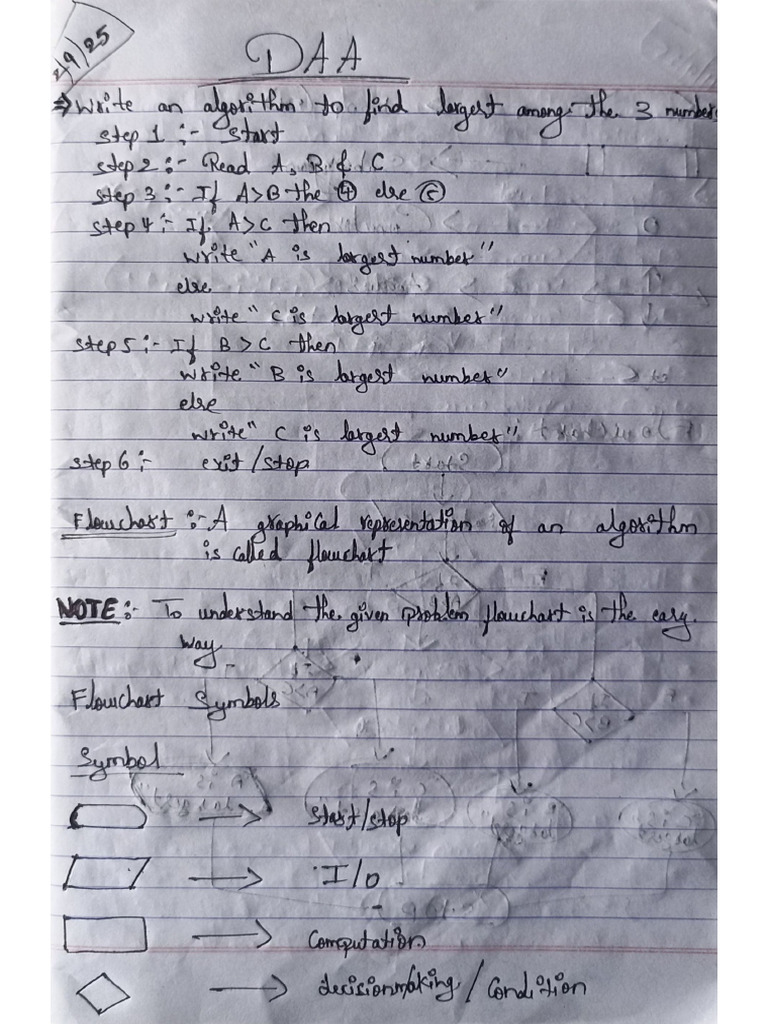 2/9/25
DAA
⇒ Write an algorithm to find largest among the 3 number
step 1 :- Start
step 2 :- Read A, B & C
step 3 :- If A>B the ④ else ⑤
step 4 :- If A>C then
write "A is largest number"
else
write "C is largest number"
step 5 :- If B>C then
write "B is largest number"
else
write "C is largest number"
step 6 :- exit/stop
Flowchart :- A graphical representation of an algorithm
is called flowchart
NOTE :- To understand the given problem flowchart is the easy
way
Flowchart Symbols
Symbol
→ Start/stop
→ I/O
→ Computation
→ decisionmaking/Condition